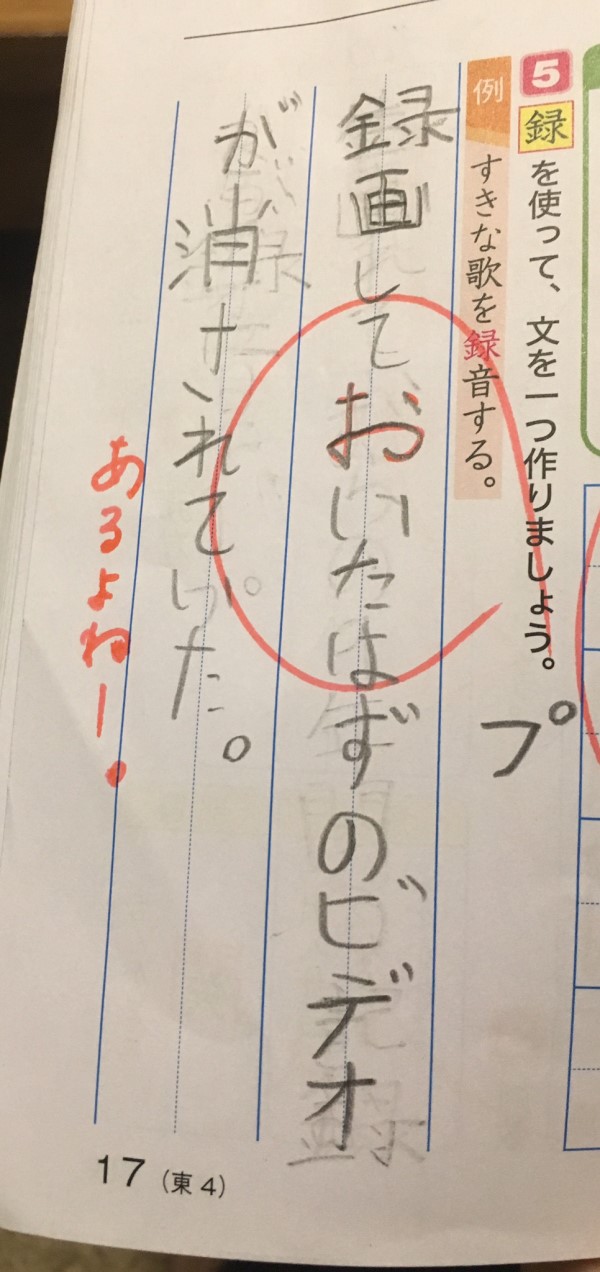 5 録を使って、文を一つ作りましょう。
例 すきな歌を録音する。
プ
録画しておいたはずのビデオ
が消されていた。
あるよねー。
17(東4)